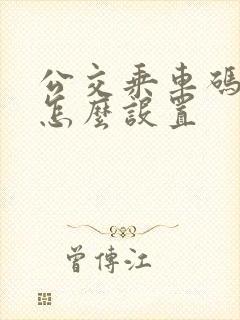 公交乘車碼
怎麼設置
曾傳江